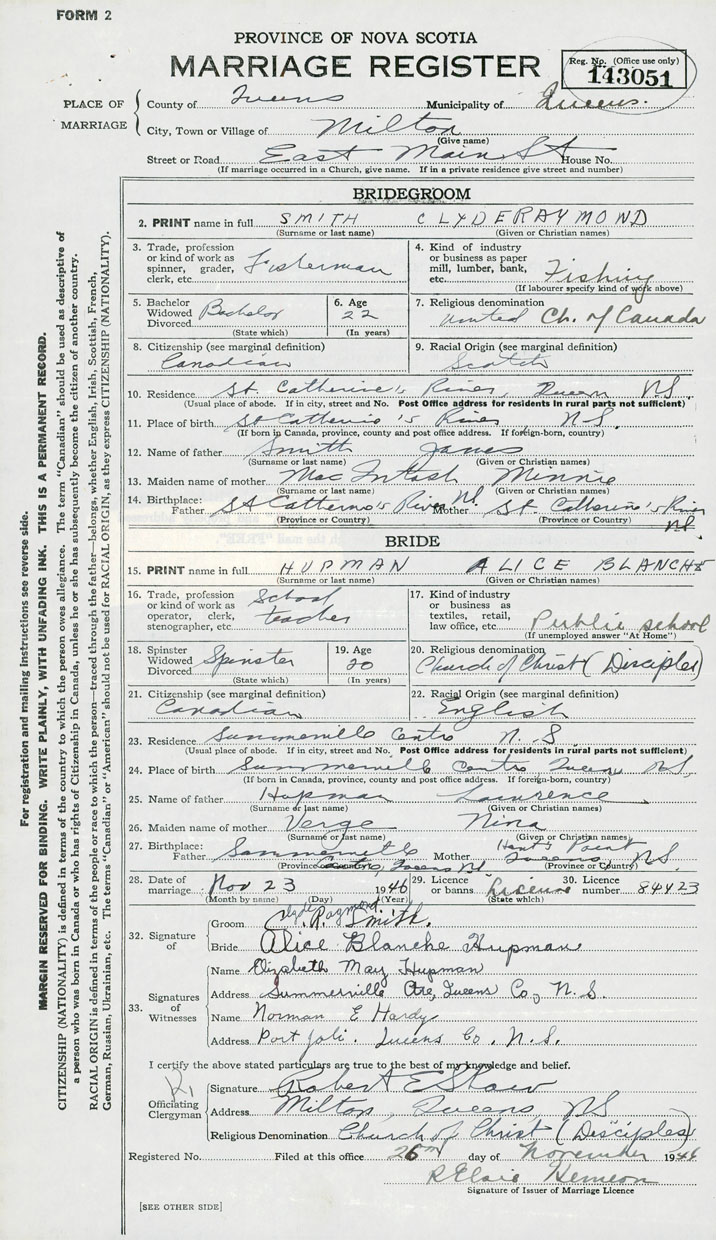 FORM 2
PROVINCE OF NOVA SCOTIA
MARRIAGE REGISTER
Reg. No. (Office use only)
143051
PLACE OF MARRIAGE
County of Queens Municipality of Queens.
City, Town or Village of Milton
(Give name)
Street or Road East Main St House No.
(If marriage occurred in a Church, give name. If in a private residence give street and number)
BRIDEGROOM
2. PRINT name in full SMITH CLYDE RAYMOND
(Surname or last name) (Given or Christian names)
3. Trade, profession or kind of work as spinner, grader, clerk, etc. Fisterman
4. Kind of industry or business as paper mill, lumber, bank, etc. Fishing
(If labourer specify kind of work above)
5. Bachelor Widowed Divorced Bachelor
(State which)
6. Age 22
(In years)
7. Religious denomination
United Ch. of Canada
8. Citizenship (see marginal definition)
Canadian
9. Racial Origin (see marginal definition)
Scotch
10. Residence St. Catherine's River, Queens N.S.
(Usual place of abode. If in city, street and No. Post Office address for residents in rural parts not sufficient)
11. Place of birth St Catherine's River, N.S.
(If born in Canada, province, county and post office address. If foreign-born, country)
12. Name of father Smith James
(Surname or last name) (Given or Christian names)
13. Maiden name of mother MacIntosh Minnie
(Surname or last name) (Given or Christian names)
14. Birthplace: Father St Catherine's River NS Mother St. Catherine's River NS
(Province or Country) (Province or Country)
BRIDE
15. PRINT name in full HUPMAN ALICE BLANCHE
(Surname or last name) (Given or Christian names)
16. Trade, profession or kind of work as operator, clerk, stenographer, etc. School teacher
17. Kind of industry or business as textiles, retail, law office, etc. Public school
(If unemployed answer "At Home")
18. Spinster Widowed Divorced Spinster
(State which)
19. Age 20
(In years)
20. Religious denomination
Church of Christ (Disciples)
21. Citizenship (see marginal definition)
Canadian
22. Racial Origin (see marginal definition)
English
23. Residence Summerville Centre N.S.
(Usual place of abode. If in city, street and No. Post Office address for residents in rural parts not sufficient)
24. Place of birth Summerville Centre Queens NS.
(If born in Canada, province, county and post office address. If foreign-born, country)
25. Name of father Hupman Lawrence
(Surname or last name) (Given or Christian names)
26. Maiden name of mother Verge Nina
(Surname or last name) (Given or Christian names)
27. Birthplace: Father Summerville Centre, Queens NS Mother Hunt's Point Queens N.S.
(Province or Country) (Province or Country)
28. Date of marriage Nov 23 1946
(Month by name) (Day) (Year)
29. Licence or banns License
(State which)
30. Licence number 84423
32. Signature of
Groom Clyde Raymond Smith.
Bride Alice Blanche Hupman
33. Signatures of Witnesses
Name Elizabeth May Hupman
Address Summerville Ctre, Queens Co, N.S.
Name Norman E Hardy
Address Port Joli. Queens Co. N.S.
I certify the above stated particulars are true to the best of my knowledge and belief.
Officiating Clergyman
Signature Robert E Shaw
Address Milton, Queens, NS
Religious Denomination Church of Christ (Disciples)
Registered No. Filed at this office 26th day of November 1946
Signature of Issuer of Marriage Licence
[SEE OTHER SIDE]
For registration and mailing instructions see reverse side.
MARGIN RESERVED FOR BINDING. WRITE PLAINLY, WITH UNFADING INK. THIS IS A PERMANENT RECORD.
CITIZENSHIP (NATIONALITY) is defined in terms of the country to which the person owes allegiance. The term "Canadian" should be used as descriptive of
a person who was born in Canada or who has rights of Citizenship in Canada, unless he or she has subsequently become the citizen of another country.
RACIAL ORIGIN is defined in terms of the people or race to which the person—traced through the father—belongs, whether English, Irish, Scottish, French,
German, Russian, Ukrainian, etc. The terms "Canadian" or "American" should not be used for RACIAL ORIGIN, as they express CITIZENSHIP (NATIONALITY).